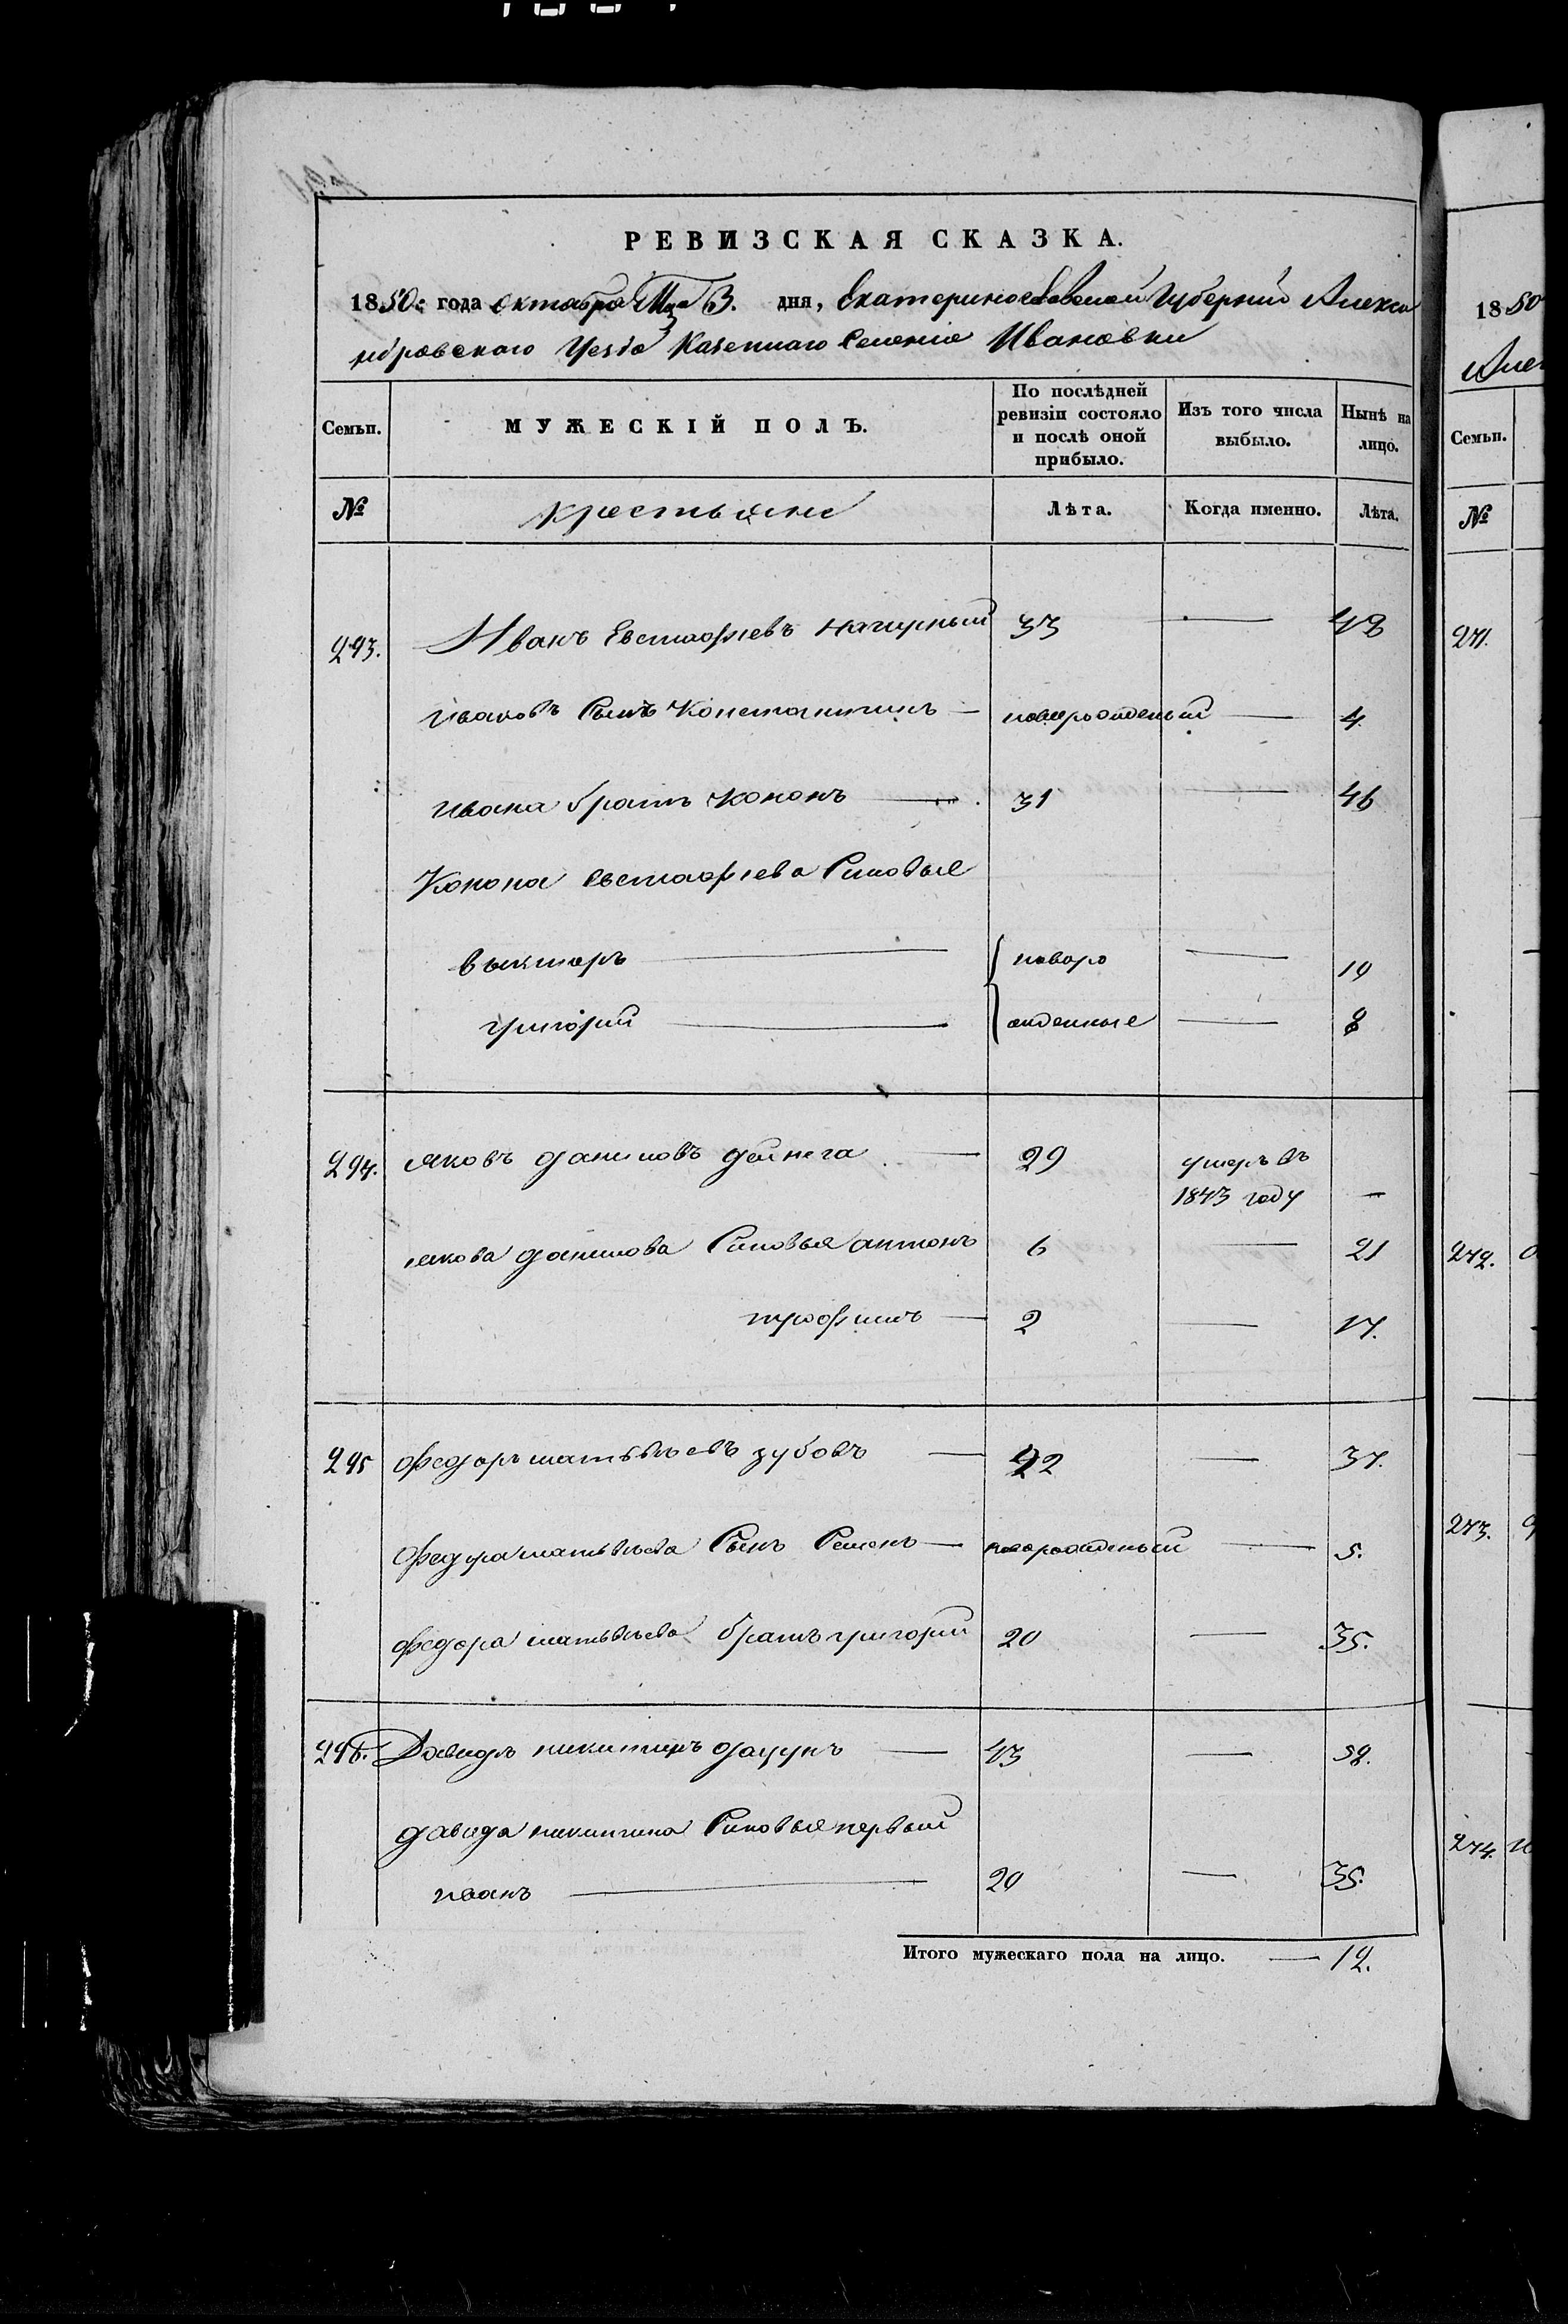 РЕВИЗСКАЯ СКАЗКА.
1850 года октабра Мца 3. дня, Екатеринославской Губерний Алекса
ндровскаго Уезда Казеннаго Селенiя Ивановки
Семьи. МУЖЕСКІЙ ПОЛЪ. По послѣдней ревизіи состояло и послѣ оной прибыло. Изъ того числа выбыло. Нынѣ на лицо.
№ крестьяне Лѣта. Когда именно. Лѣта.
293. Иванъ Евстафiевъ Нагирный 33 — 48
Ивановъ Сынъ Константинъ — новорожденый — 4
ивана братъ Кононъ — 31 — 46
Конона Евстафiева Сыновья
Викторъ — новоро — 10
григорiй — жденные — 8
294. яковъ даниловъ дейнега — 29 умеръ въ
1843 году —
якова данилова Сыновья антонъ 6 — 21
трофимъ — 2 — 17.
295 федоръ матвѣевъ зубовъ — 22 — 37.
федора матвѣева Сынъ Семенъ — новорожденый — 5.
федора матвѣева братъ григорiй 20 — 35.
296. Давидъ никитинъ — 43 — 58.
давида никитина Сыновья первый
иванъ — 20 — 35.
Итого мужескаго пола на лицо. — 12.
1850
Алек
Семьи.
№
271.
272.
273.
274.